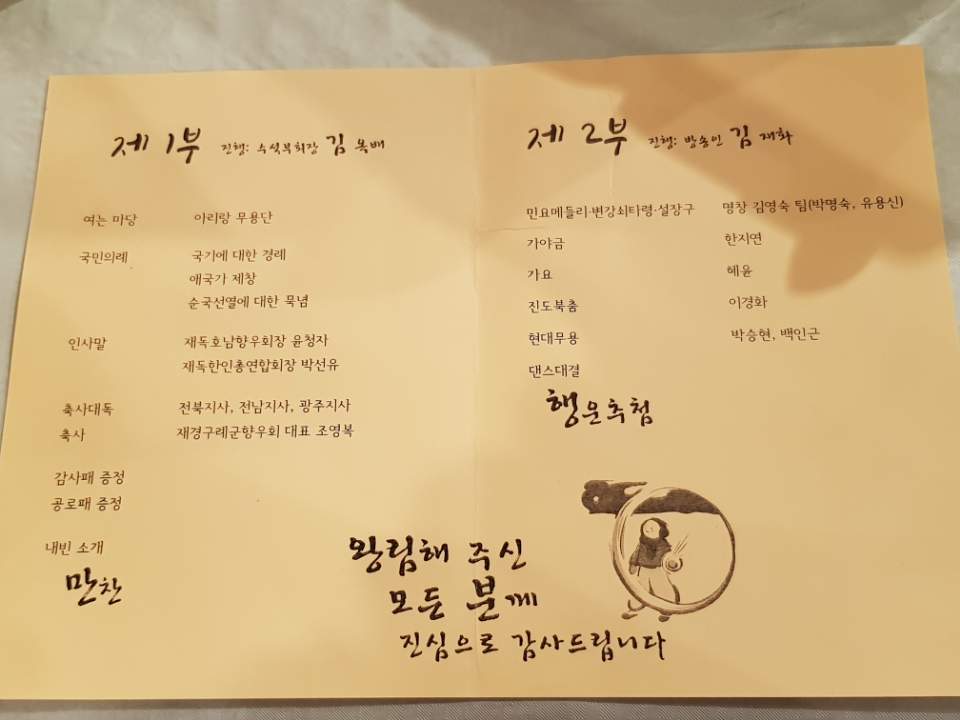 제 1부 진행: 수석부회장 김 복배
여는 마당 아리랑 무용단
국민의례 국기에 대한 경례
애국가 제창
순국선열에 대한 묵념
인사말 재독호남향우회장 윤청자
재독한인총연합회장 박선유
축사대독 전북지사, 전남지사, 광주지사
축사 재경구례군향우회 대표 조영복
감사패 증정
공로패 증정
내빈 소개
만찬
제 2부 진행: 방송인 김 재화
민요메들리·변강쇠타령·설장구 명창 김영숙 팀(박명숙, 유용신)
가야금 한지연
가요 혜윤
진도북춤 이경화
현대무용 박승현, 백인근
댄스대결
행운추첨
왕림해 주신
모든 분께
진심으로 감사드립니다